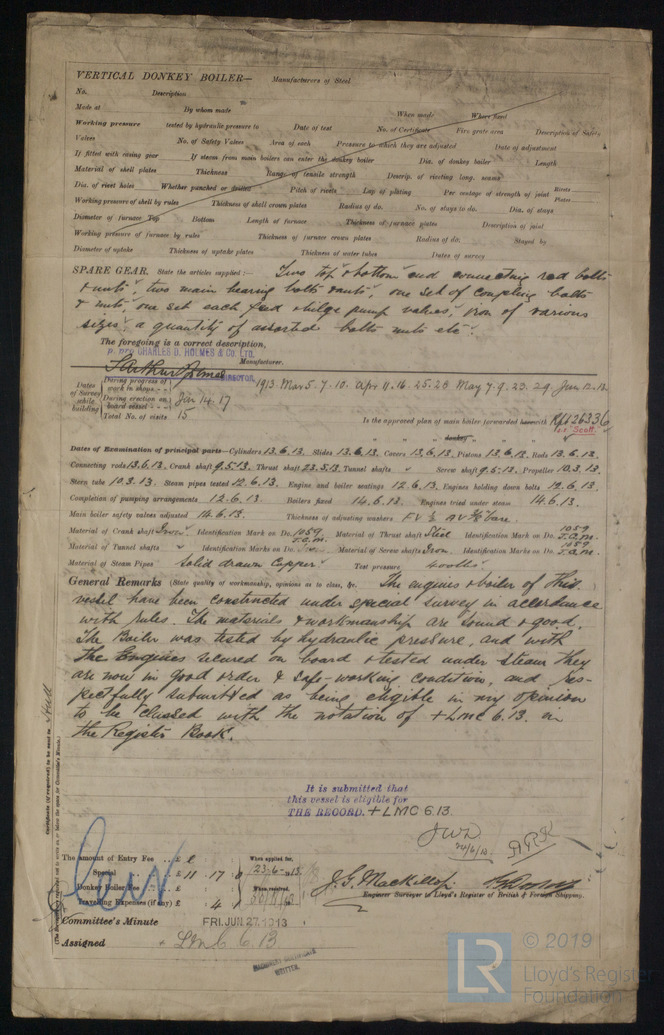 VERTICAL DONKEY BOILER— Manufacturers of Steel
No. Description
Made at By whom made When made Where fixed
Working pressure tested by hydraulic pressure to Date of test No. of Certificate Fire grate area Description of Safety
Valves No. of Safety Valves Area of each Pressure to which they are adjusted Date of adjustment
If fitted with easing gear If steam from main boilers can enter the donkey boiler Dia. of donkey boiler Length
Material of shell plates Thickness Range of tensile strength Descrip. of riveting long. seams
Dia. of rivet holes Whether punched or drilled Pitch of rivets Lap of plating Per centage of strength of joint Rivets Plates
Working pressure of shell by rules Thickness of shell crown plates Radius of do. No. of stays to do. Dia. of stays
Diameter of furnace Top Bottom Length of furnace Thickness of furnace plates Description of joint
Working pressure of furnace by rules Thickness of furnace crown plates Radius of do. Stayed by
Diameter of uptake Thickness of uptake plates Thickness of water tubes Dates of survey
SPARE GEAR. State the articles supplied:— Two top & bottom end connecting rod bolts
& nuts, two main bearing bolts & nuts, one set of coupling bolts
& nuts, one set each feed & bilge pump valves, iron of various
sizes, a quantity of assorted bolts nuts etc.
The foregoing is a correct description,
P. PRO CHARLES D. HOLMES & Co. LTD.
Manufacturer.
DIRECTOR.
Dates of Survey while building
During progress of work in shops - - 1913. Mar 5. 7. 10. Apr 11. 16. 25. 28 May 7. 9. 23. 29. Jun 12. 13.
During erection on board vessel - - - Jun 14. 17
Total No. of visits 15
Is the approved plan of main boiler forwarded herewith
" " " donkey " " "
Dates of Examination of principal parts—Cylinders 13.6.13. Slides 13.6.13. Covers 13.6.13. Pistons 13.6.13. Rods 13.6.13.
Connecting rods 13.6.13. Crank shaft 9.5.13. Thrust shaft 23.5.13. Tunnel shafts " Screw shaft 9.5.13. Propeller 10.3.13.
Stern tube 10.3.13. Steam pipes tested 12.6.13. Engine and boiler seatings 12.6.13. Engines holding down bolts 12.6.13.
Completion of pumping arrangements 12.6.13. Boilers fixed 14.6.13. Engines tried under steam 14.6.13.
Main boiler safety valves adjusted 14.6.13. Thickness of adjusting washers
Material of Crank shaft Iron. Identification Mark on Do. 1059 Material of Thrust shaft Steel Identification Mark on Do. 1059
Material of Tunnel shafts " Identification Marks on Do. Material of Screw shafts Iron. Identification Marks on Do. 1059
Material of Steam Pipes Solid drawn Copper. Test pressure 400 lbs
General Remarks (State quality of workmanship, opinions as to class, &c. The engines & boiler of this
vessel have been constructed under special survey in accordance
with rules. The materials & workmanship are sound & good.
The Boiler was tested by hydraulic pressure, and with
the Engines secured on board & tested under steam they
are now in good order & safe working condition, and res-
pectfully submitted as being eligible in my opinion
to be classed with the notation of + LMC 6.13. in
the Register Book.
Certificate (if required) to be sent to Hull
It is submitted that
this vessel is eligible for
THE RECORD. + LMC 6.13.
The amount of Entry Fee .. £ When applied for,
Special .. £ 11 . 17 . 23.6.13.
Donkey Boiler Fee .. £ When received,
Travelling Expenses (if any) £ 4
J. G. Mackillop
Engineer Surveyor to Lloyd's Register of British & Foreign Shipping.
Committee's Minute FRI. JUN. 27. 1913
Assigned + LMC 6.13
MACHINERY CERTIFICATE
WRITTEN.
LR
© 2019
Lloyd's Register
Foundation